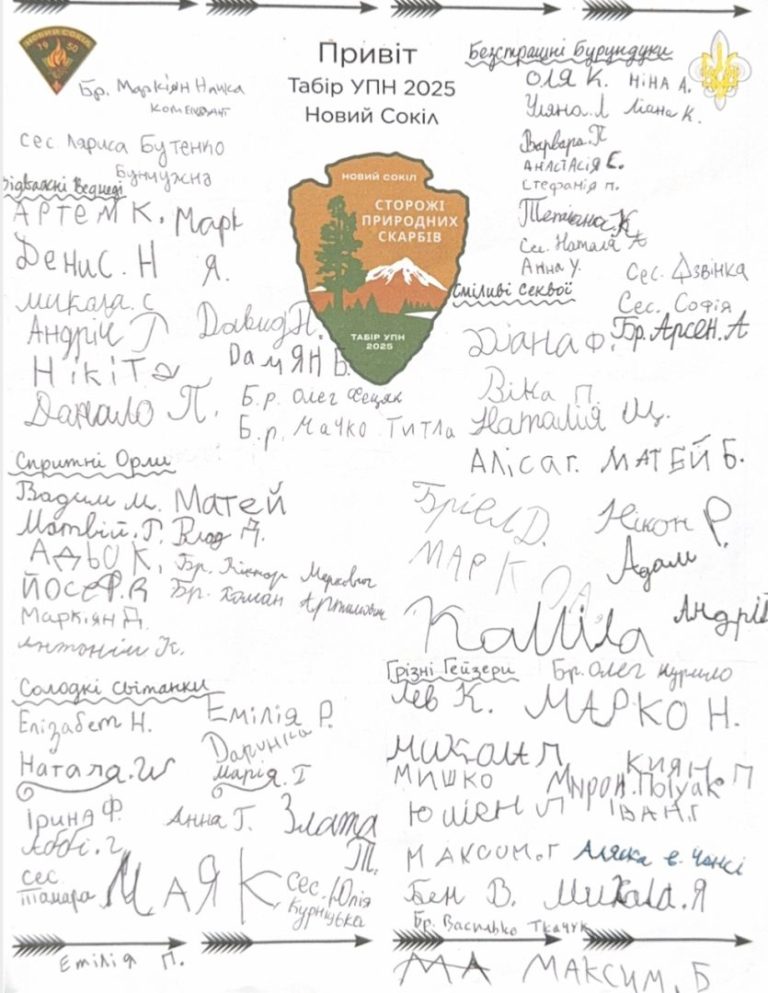 НОВИЙ СОКІЛ
1950
Привіт
Табір УПН 2025
Новий Сокіл
Бр. Маркіян Нашка
Комендант
сес. Лариса Бутенко
Бунчужна
НОВИЙ СОКІЛ
СТОРОЖІ
ПРИРОДНИХ
СКАРБІВ
ТАБІР УПН
2025
Відважні Ведмеді
АРТЕМ К. Марк Я.
Денис. Н
Микола. С
Андрій Г Давид Н.
Нікіта Дамян Б.
Данило П. Б.р. Олег Фецяк
Б.р. Мачко Титла
Спритні Орли
Вадим М. Матей
Матвій. Г. Влад Д.
АДЬО К. Бр. Віктор Маркович
ЙОСЕФ. В Бр. Роман Артимович
Маркіян Д.
Антоній К.
Солодкі Світанки
Елізабет Н. Емілія Р.
Даринка
Натала. W Марія. Т
Ірина Ф. Анна Г. Злата Т.
Аббі. Г.
сес Тамара МАЯ К. сес. Юлія
Емілія П.
Безстрашні Бурундуки
Оля К. Ніна А.
Уляна. Л Ліана К.
Варвара. П
АНАСТАСІЯ Е.
Стефанія П.
Тетяна. К
Сес. Наталя А
Анна У. Сес. Дзвінка
Сес. Софія
Бр. Арсен. А
Сміливі Секвої
Діана Ф.
Віка П.
Наталія Щ.
Аліса г. МАТЕЙ Б.
Бріел Д. Нікон Р.
МАРК Адам
Каміла Андрій
Грізні Гейзери Бр. Олег Курило
Лев К. МАРКО Н.
Микола П КИЯН. П
МИШКО Мирон. Polyak
Юліен Л ІВАН. Г
МАКСИМ. Г Аляска е. Чансі
Бен В. Микола. Я
Бр. Василько Ткачук
МАКСИМ. Б